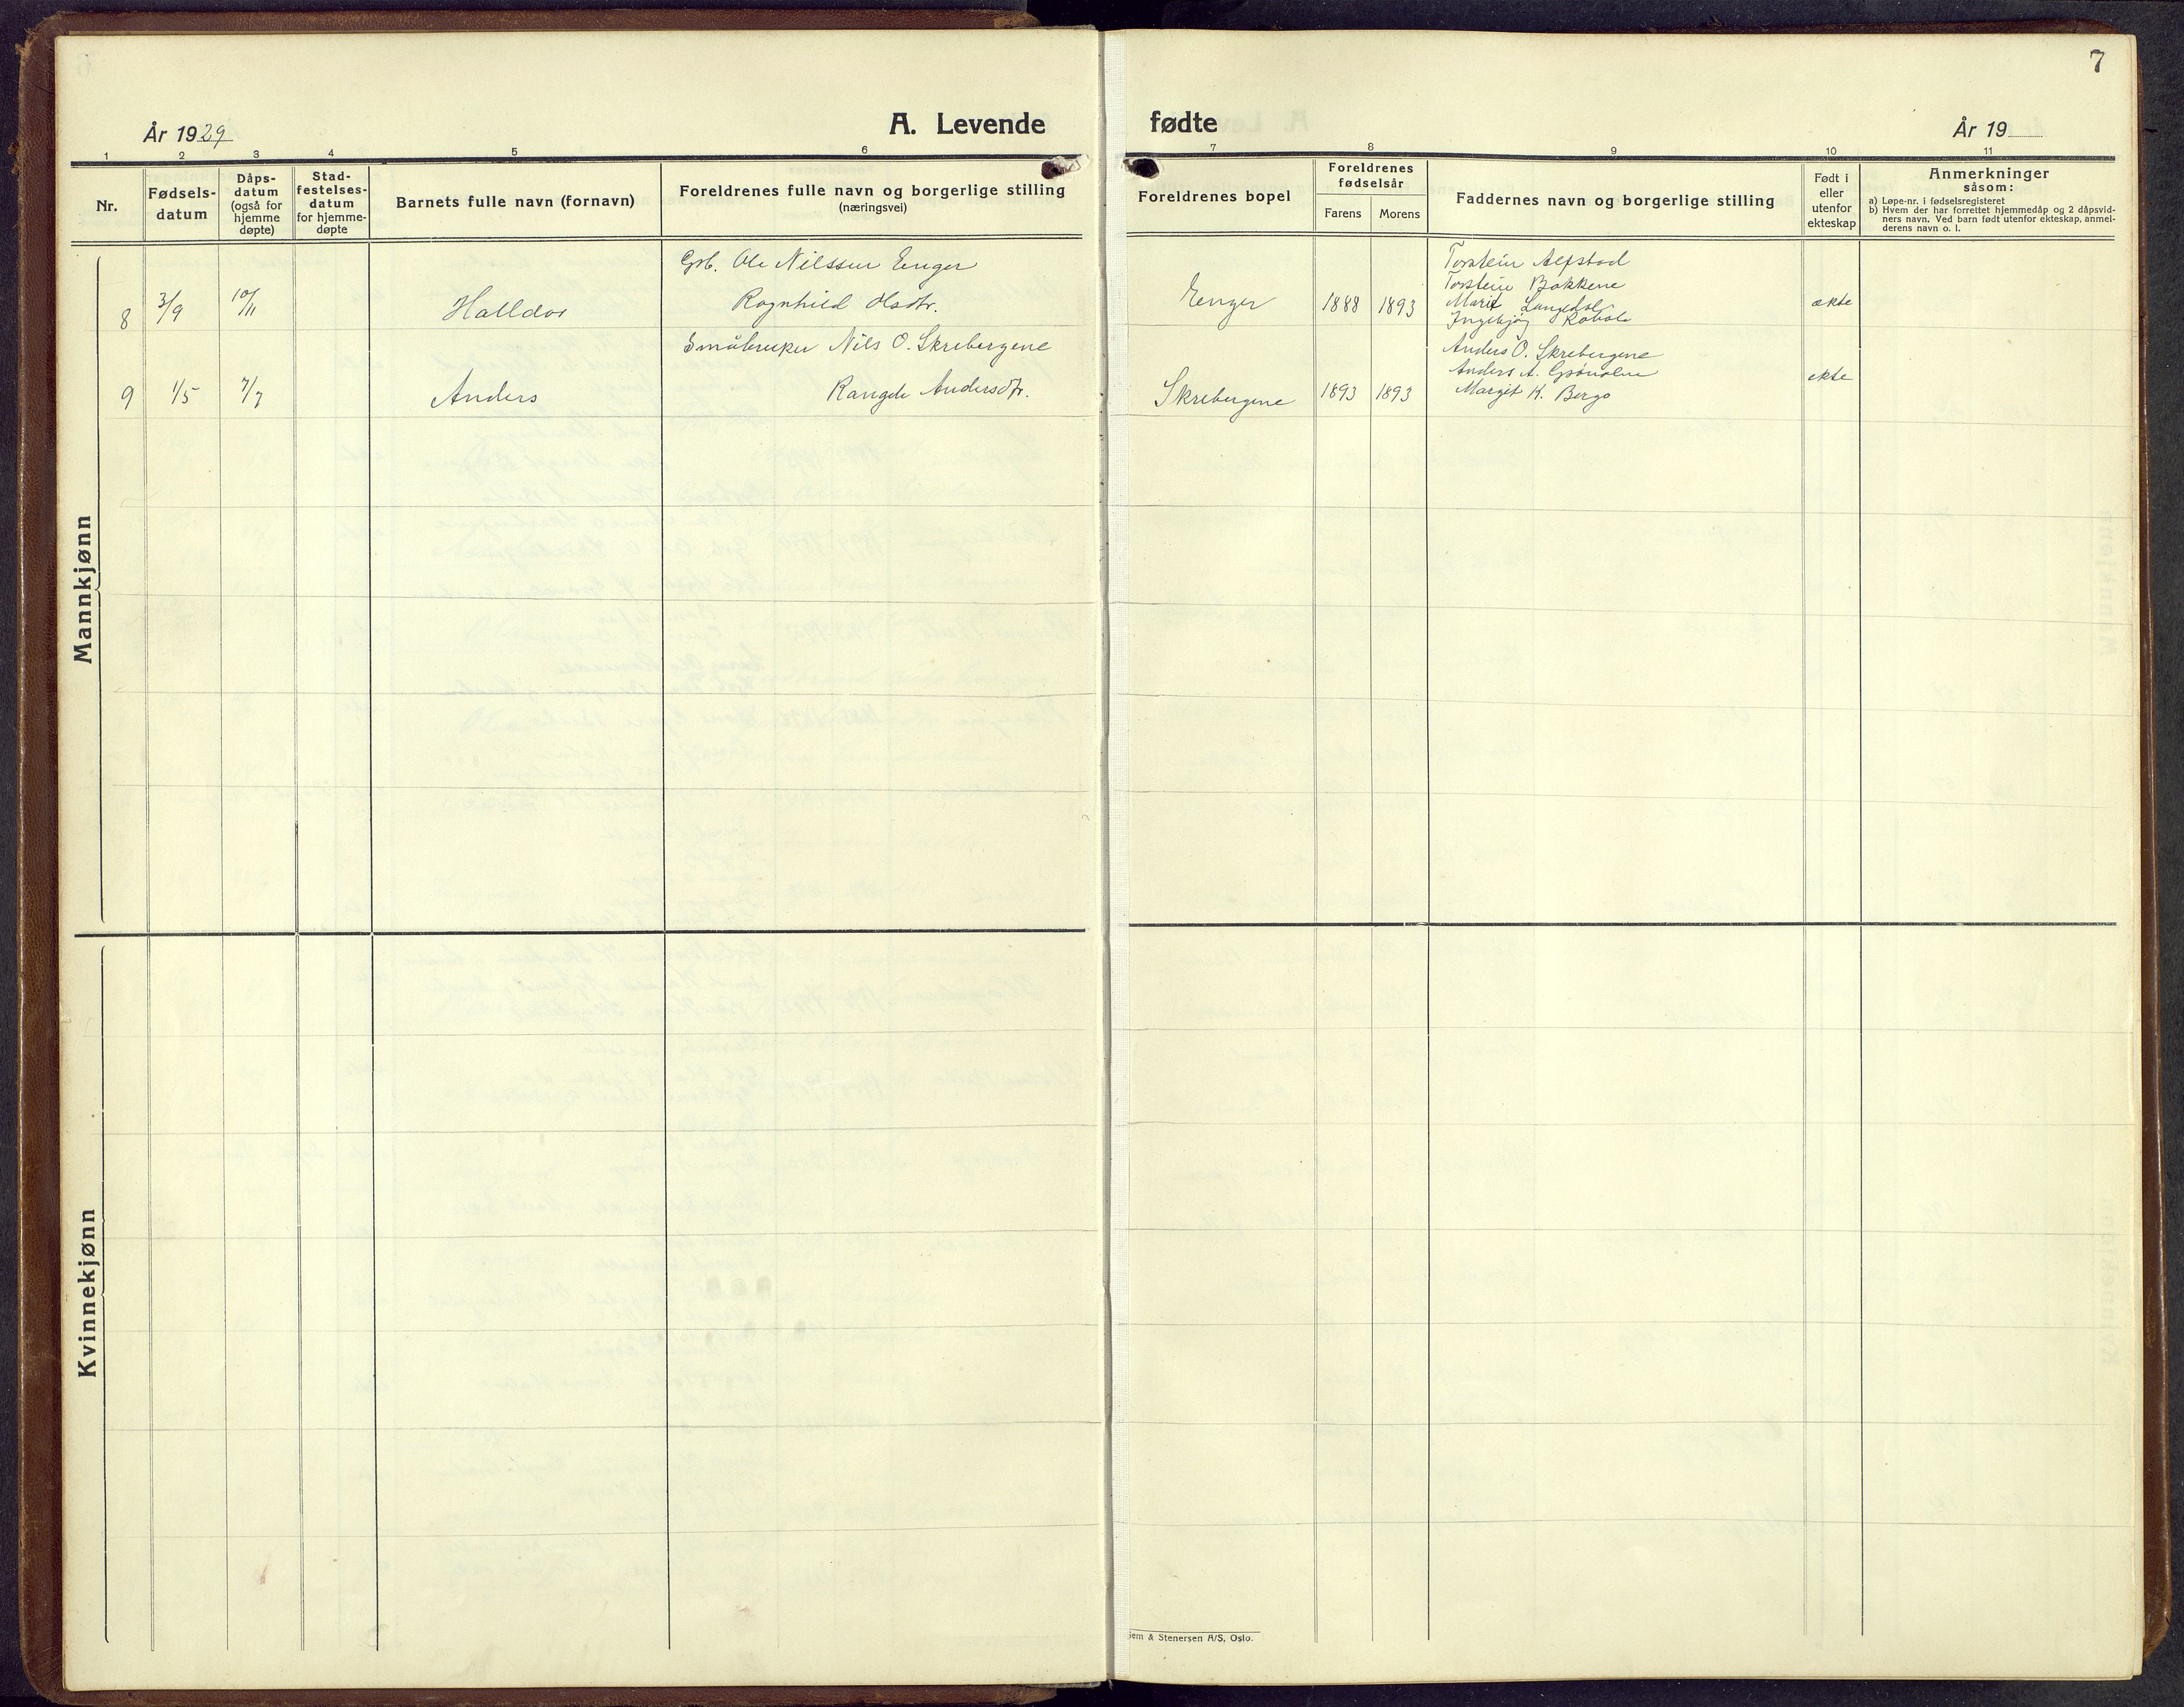 7
År 1929
A. Levende fødte
År 19
1 2 3 4 5 6 7 8 9 10 11
Nr.
Fødsels-
datum
Dåps-
datum
(også for
hjemme
døpte)
Stad-
festelses-
datum
for hjemme-
døpte
Barnets fulle navn (fornavn)
Foreldrenes fulle navn og borgerlige stilling
(næringsvei)
Foreldrenes bopel
Foreldrenes
fødselsår
Farens Morens
Faddernes navn og borgerlige stilling
Født i
eller
utenfor
ekteskap
Anmerkninger
såsom:
a) Løpe-nr. i fødselsregisteret
b) Hvem der har forrettet hjemmedåp og 2 dåpsvid-
ners navn. Ved barn født utenfor ekteskap, anmel-
derens navn o. l.
Mannkjønn
8 3/9 10/11 Halldor
Grb. Ole Nilssen Enger
Ragnhild Olsdtr.
Enger 1888 1893
Torstein Alfstad
Torstein Bakkene
Marit
Ingebjørg Robøle
ekte
9 1/5 7/7 Anders
Småbruker Nils O. Skrebergene
Rangdi Andersdtr.
Skrebergene 1893 1893
Anders O. Skrebergene
Anders A.
Margit K. Bergo
ekte
Kvinnekjønn
em & Stenersen A/S, Oslo.